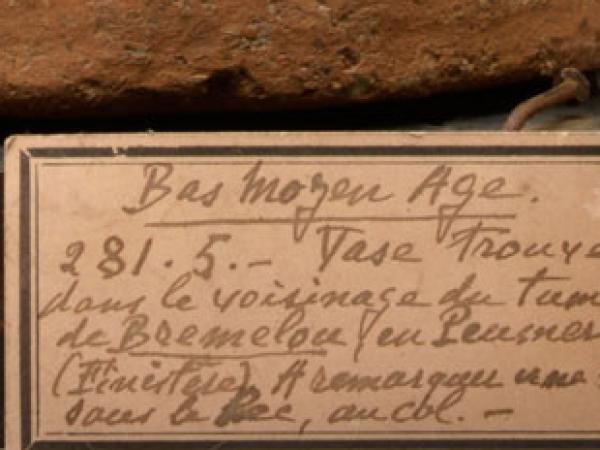 Bas Moyen Age.
281.5.- Vase trouvé
dans le voisinage du tum
de Bremelou en Peumer
(Finistère) A remarquer une
sous le bec, au col. -